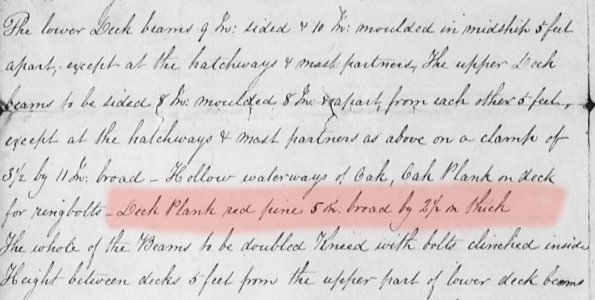 The lower Deck beams 9 In: sided & 10 In: moulded in midship 5 feet
apart, except at the hatchways & mast partners, The upper Deck
beams to be sided 8 In: moulded 8 In: & apart from each other 5 feet,
except at the hatchways & mast partners as above on a clamp of
3½ by 11 In: broad – Hollow waterways of Oak, Oak Plank on deck
for ringbolts – Deck Plank red pine 5 In. broad by 2½ In thick
The whole of the Beams to be doubled Kneed with bolts clinched inside
Height between decks 5 feet from the upper part of lower deck beams